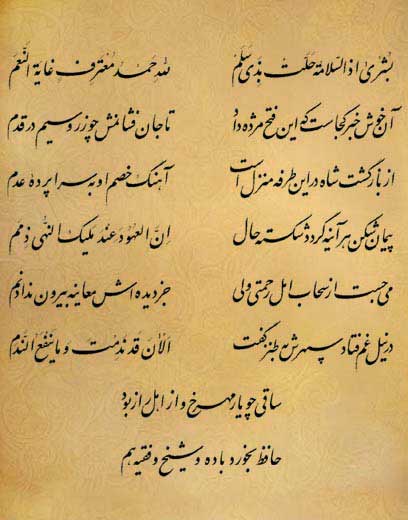 بُشْریٰ اِذ السَّلامَةُ حَلَّتْ بِذی سَلَم    لِلّٰهِ حَمدُ مُعْتَرِفٍ غایَةَ النَّعَم
آن خوش خبر کجاست که این فتح مژده داد    تا جان فشانمش چو زر و سیم در قدم
از بازگشت شاه در این طرفه منزل است    آهنگ خصم او به سراپرده عدم
پیمان شکن هر آینه گردد شکسته حال    اِنَّ العُهُودَ عِندَ مَلیکِ النُّهیٰ ذِمَم
می جست از سحاب امل رحمتی ولی    جز دیده اش معاینه بیرون نداد نم
در نیل غم فتاد سپهرش به طنز گفت    اَلْاٰنَ قَد نَدِمتَ وَ ما یَنفَعُ النَّدَم
ساقی چو یار مهرخ و از اهل راز بود
حافظ بخورد باده و شیخ و فقیه هم